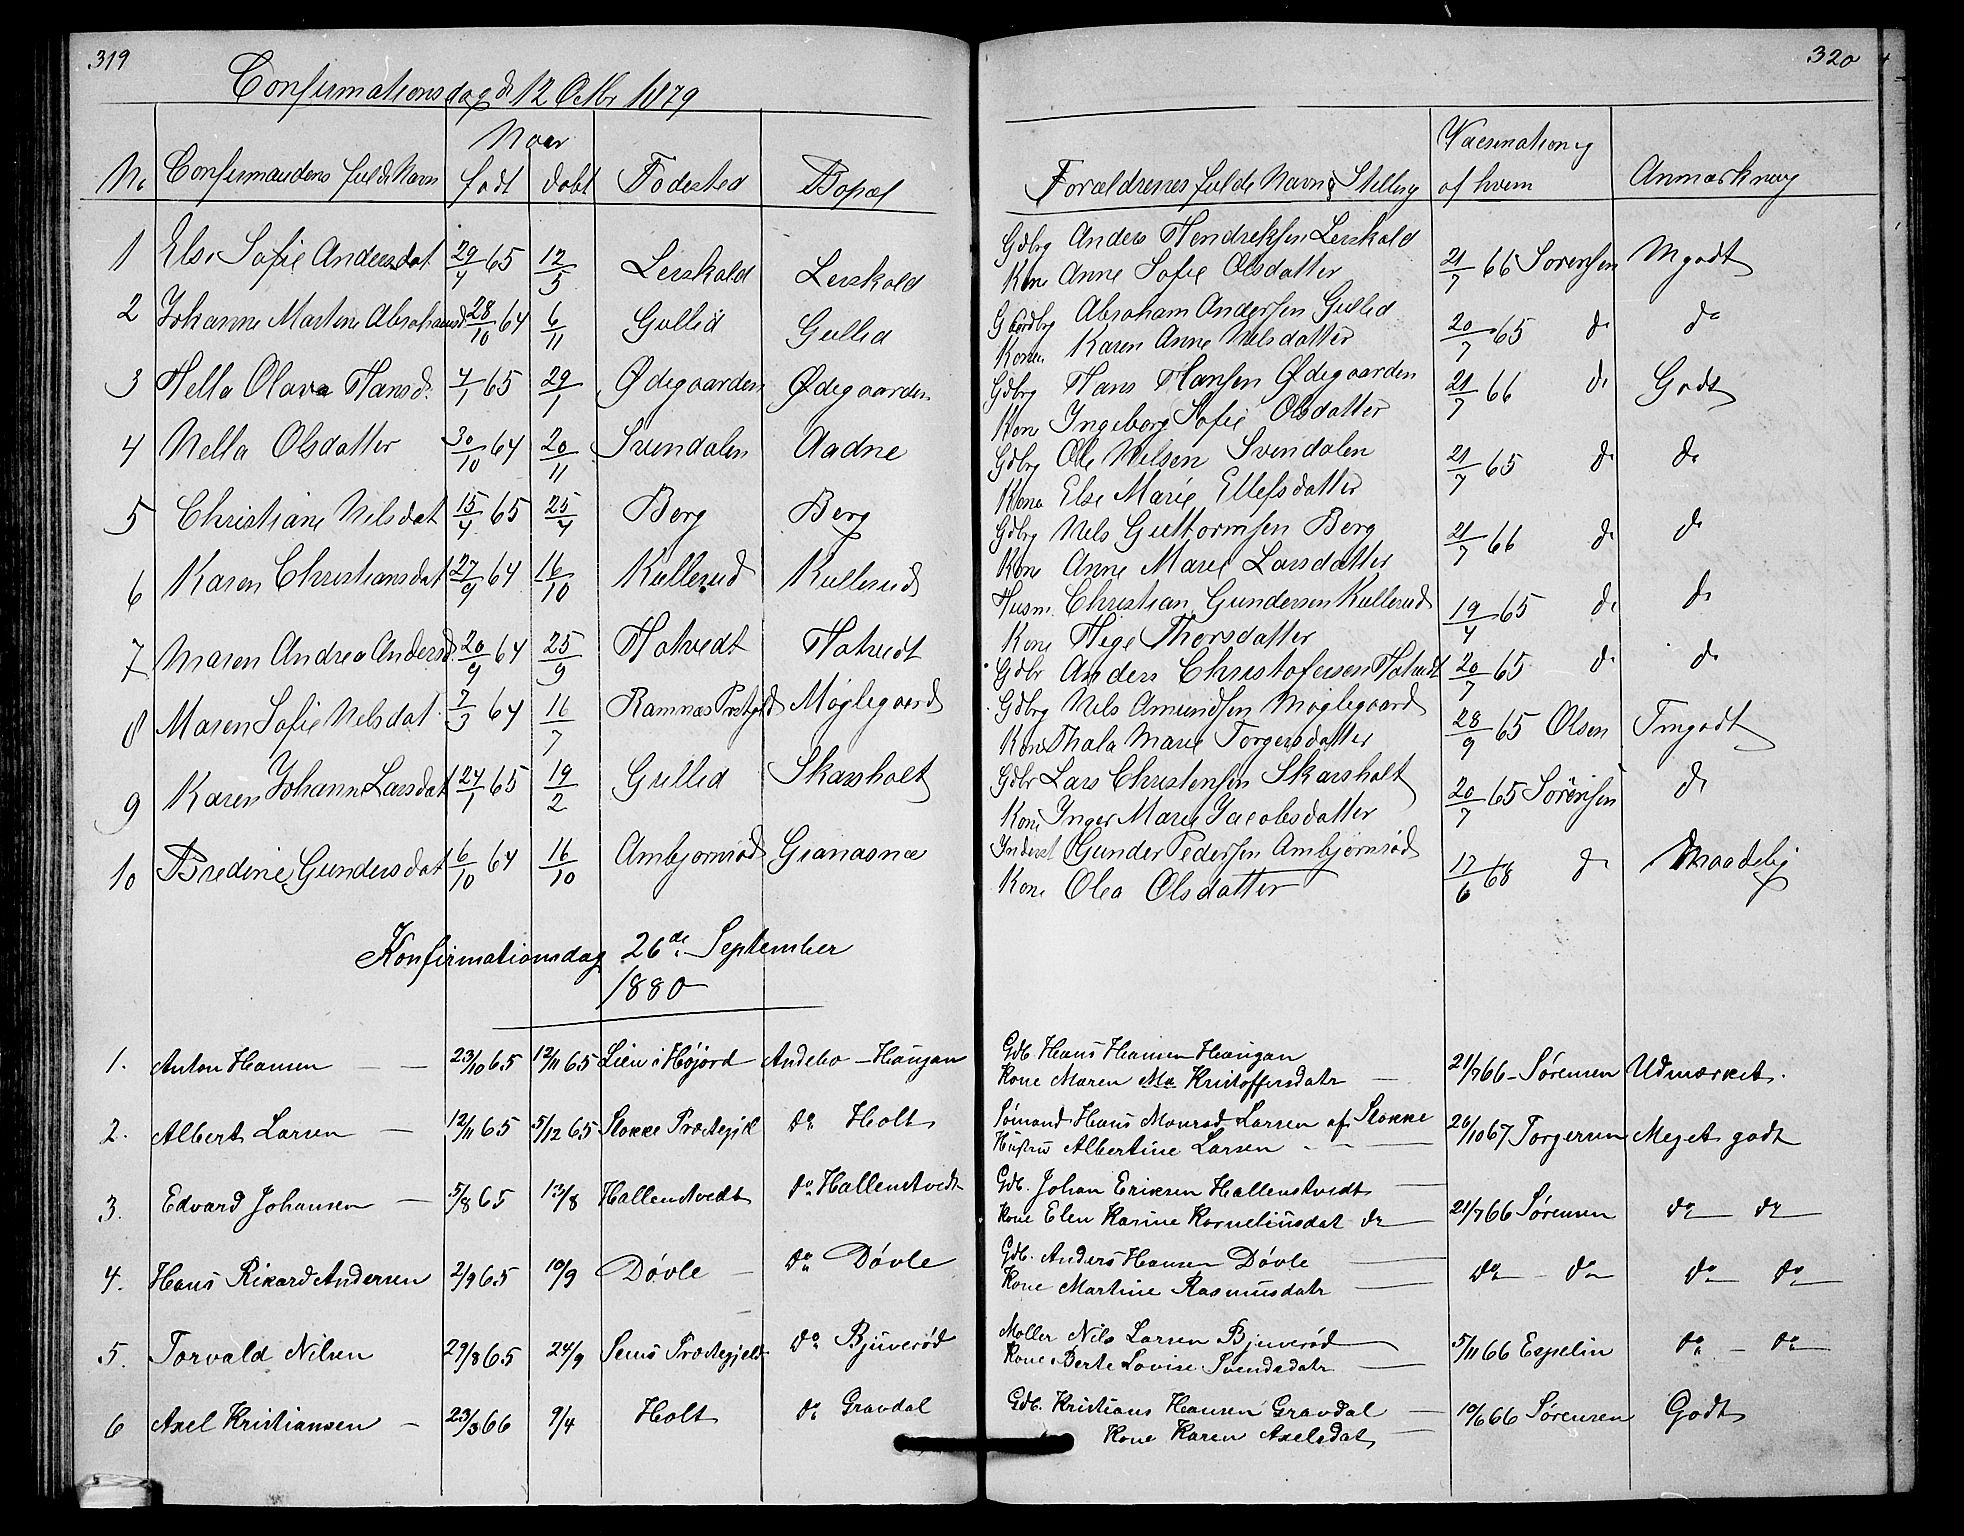 319
320
Confirmationsdag d 12 Octbr 1879
Naar
No Confirmandens fulde Navn født døbt Fødested Bopæl Forældrenes fulde Navn & Stilling Vacsination og af hvem Anmærkning
1 Else Sofie Andersdat 29/4 65 12/5 Lerskald Lerskald Gdbrg Anders Hendriksen Lerskald 21/7 66 Sørensen Mgodt
Kone Anne Sofie Olsdatter
2 Johanne Martine Abrahamsd 28/10 64 6/11 Gullid Gullid Gaardbrg Abraham Andersen Gullid 20/7 65 do do
Konen Karen Anne Nilsdatter
3 Hella Olava Hansd. 4/1 65 29/1 Ødegaarden Ødegaarden Gdbrg Hans Hansen Ødegaarden 21/7 66 do Godt
Kone Ingeborg Sofie Olsdatter
4 Nella Olsdatter 30/10 64 20/11 Svendalen Aadne Gdbrg Ole Nilsen Svendalen 21/7 65 do do
Kone Else Marie Ellefsdatter
5 Christiane Nilsdat 15/4 65 25/4 Berg Berg Gdbrg Nils Guttormsen Berg 21/7 66 do do
Kone Anne Marie Larsdatter
6 Karen Christiansdat 27/9 64 16/10 Kullerud Kullerud Husm. Christian Gundersen Kullerud 19/4 65 do do
Kone Hege Thorsdatter
7 Maren Andrea Andersd 20/9 64 25/9 Hotvedt Hotvedt Gdbr Anders Christofersen Hotvedt 20/7 65 do do
8 Maren Sofie Nilsdat. 7/3 64 16/7 Ramnæs Prstgjld Møglegaard Gdbrg Nils Amundsen Møglegaard 28/9 65 Olsen Tmgodt
Kone Thala Marie Torgersdatter
9 Karen Johanne Larsdat 24/1 65 19/2 Gullid Skarsholt Gdbr Lars Christensen Skarsholt 20/7 65 Sørensen do
Kone Inger Marie Jacobsdatter
10 Bredine Gundersdat 6/10 64 16/10 Ambjørnrød Granasna Inderst Gunder Pedersen Ambjørnrød 17/6 68 do Maadelig
Kone Olea Olsdatter
Konfirmationsdag 26de September
1880
1. Anton Hansen 23/10 65 12/11 65 Lien i Højord Andebo - Haugan Gdb. Hans Hansen Haugan 21/7 66 - Sørensen Udmærket.
Kone Maren Ma Kristoffersdatr
2. Albert Larsen 12/11 65 5/12 65 Stokke Præstegjld do Holt Sømand Hans Monrad Larsen af Stokke 26/10 67 Torgersen Meget godt
Hustru Albertine Larsen
3. Edvard Johansen 5/8 65 13/8 Hallenstvedt do Hallenstvedt Gdb. Johan Eriksen Hallenstvedt 21/7 66 Sørensen do do
Kone Elen Karine Korneliusdat do
4. Hans Rikard Andersen 2/9 65 10/9 Døvle do Døvle Gdb. Anders Hansen Døvle do - do do do
Kone Martine Rasmusdatr
5. Torvald Nilsen 29/8 65 24/9 Sems Præstegjeld do Bjuerød Møller Nils Larsen Bjuerød 5/11 66 Espelin do - do
Kone Berte Lovise Svendsdatr
6 Axel Kristiansen 23/3 66 9/4 Holt do Gravdal Gdb. Kristians Hansen Gravdal 10/6 66 Sørensen Godt
Kone Karen Axelsdat